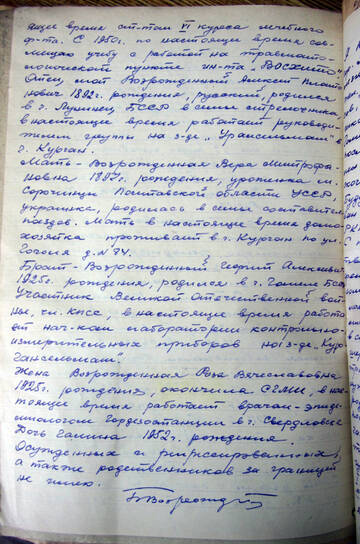 ящее время ст-том VI курса лечебного
ф-та. С 1950г. по настоящее время сов-
мещаю учебу с работой на травмато-
логическом пункте ин-та, ВОСХИТО
Отец мой Возрожденный Алексей Плато
нович 1892г. рождения, русский, родился
в г. Лунинец БССР в семье стрелочника
в настоящее время работает руководи-
телем группы на з-де „Уралсельмаш" в
г. Курган.
Мать - Возрожденная Вера Митрофа-
новна 1897г. рождения, уроженка м.
Сорочинцы Полтавской области УССР,
украинка, родилась в семье составителя
поездов. Мать в настоящее время домо-
хозяйка проживает в г. Курган по ул.
Гоголя д. N 74.
Брат - Возрожденный Георгий Алексеевич
1925г. рождения, родился в г. Гомель БССР
Участник Великой Отечественной вой-
ны, чл. КПСС, в настоящее время работа
ет нач-ком лаборатории контрольно-
измерительных приборов на з-де „Кур-
гансельмаш".
Жена Возрожденная Роза Вячеславовна
1925г. рождения, окончила СГМИ, в нас-
тоящее время работает врачом-эпиде-
миологом горсэсстанции в г. Свердловске
Дочь Галина 1952г. рождения.
Осужденных и репрессированных,
а также родственников за границей
не имею.
БВозрожд